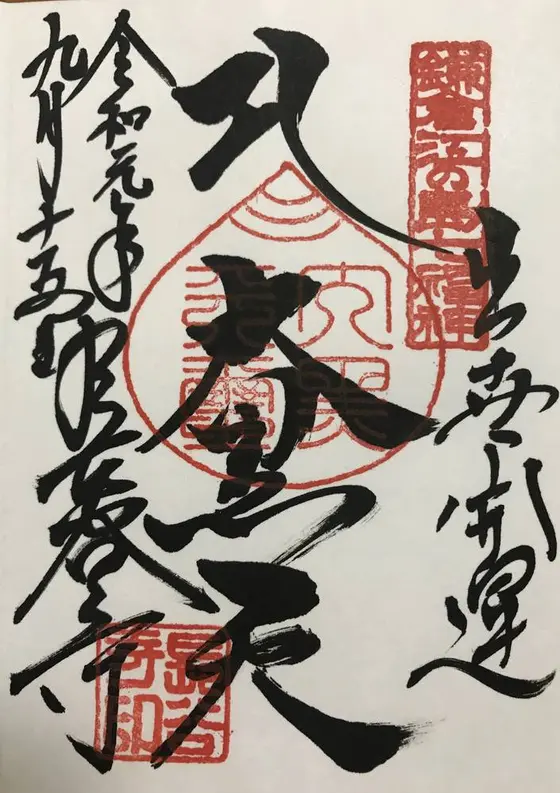 鎌倉江の島七福神
出世開運
大黒天
令和元年
九月十五日
長谷寺
長谷寺印